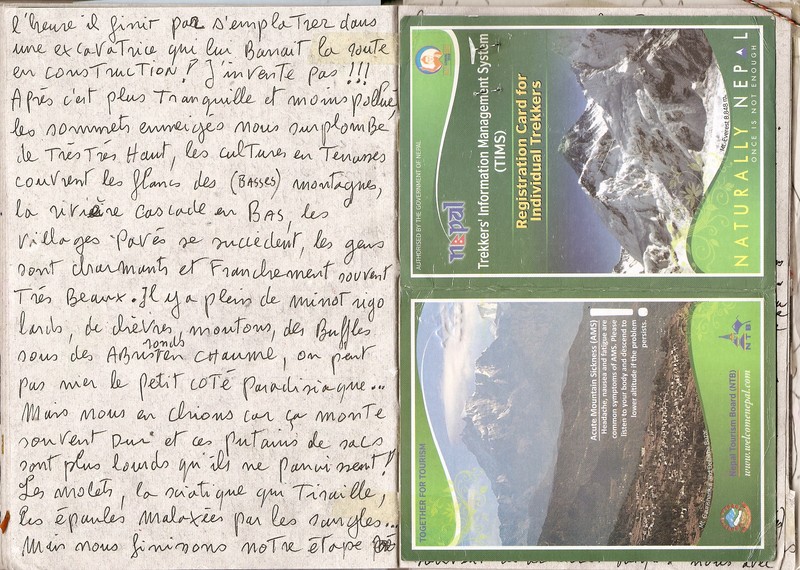 l'heure il finit par s'emplatrer dans
une excavatrice qui lui Barrait la route
en construction! J'invente pas!!!
Après c'est plus Tranquille et moins pollué,
les sommets enneigés nous surplombe
de Très Très Haut, les cultures en Terrasses
couvrent les flancs des (BASSES) montagnes,
la rivière cascade en BAS, les
villages Pavés se succèdent, les gens
sont charmants et Franchement souvent
Très Beaux. Il y a pleins de minot rigo
lards, de chèvres, moutons, des Buffles
sous des ABris ronds en CHAUME, on peut
pas nier le petit côté paradisiaque...
Mais nous en chions car ça monte
souvent Dur et ces putains de sacs
sont plus lourds qu'ils ne paraissent!!
Les molets, la sciatique qui Tiraille,
les épaules Malaxées par les sangles...
Mais nous finissons notre étape
AUTHORISED BY THE GOVERNMENT OF NEPAL
nepal
Trekkers' Information Management System
(TIMS)
Registration Card for
Individual Trekkers
Mt. Everest 8,848 m
NATURALLY NEPAL
ONCE IS NOT ENOUGH
TOGETHER FOR TOURISM
Acute Mountain Sickness (AMS)
Headache, nausea and fatigue are
common symptoms of AMS. Please
listen to your body and descend to
lower altitude if the problem
persists.
NTB
Nepal Tourism Board (NTB)
www.welcomenepal.com